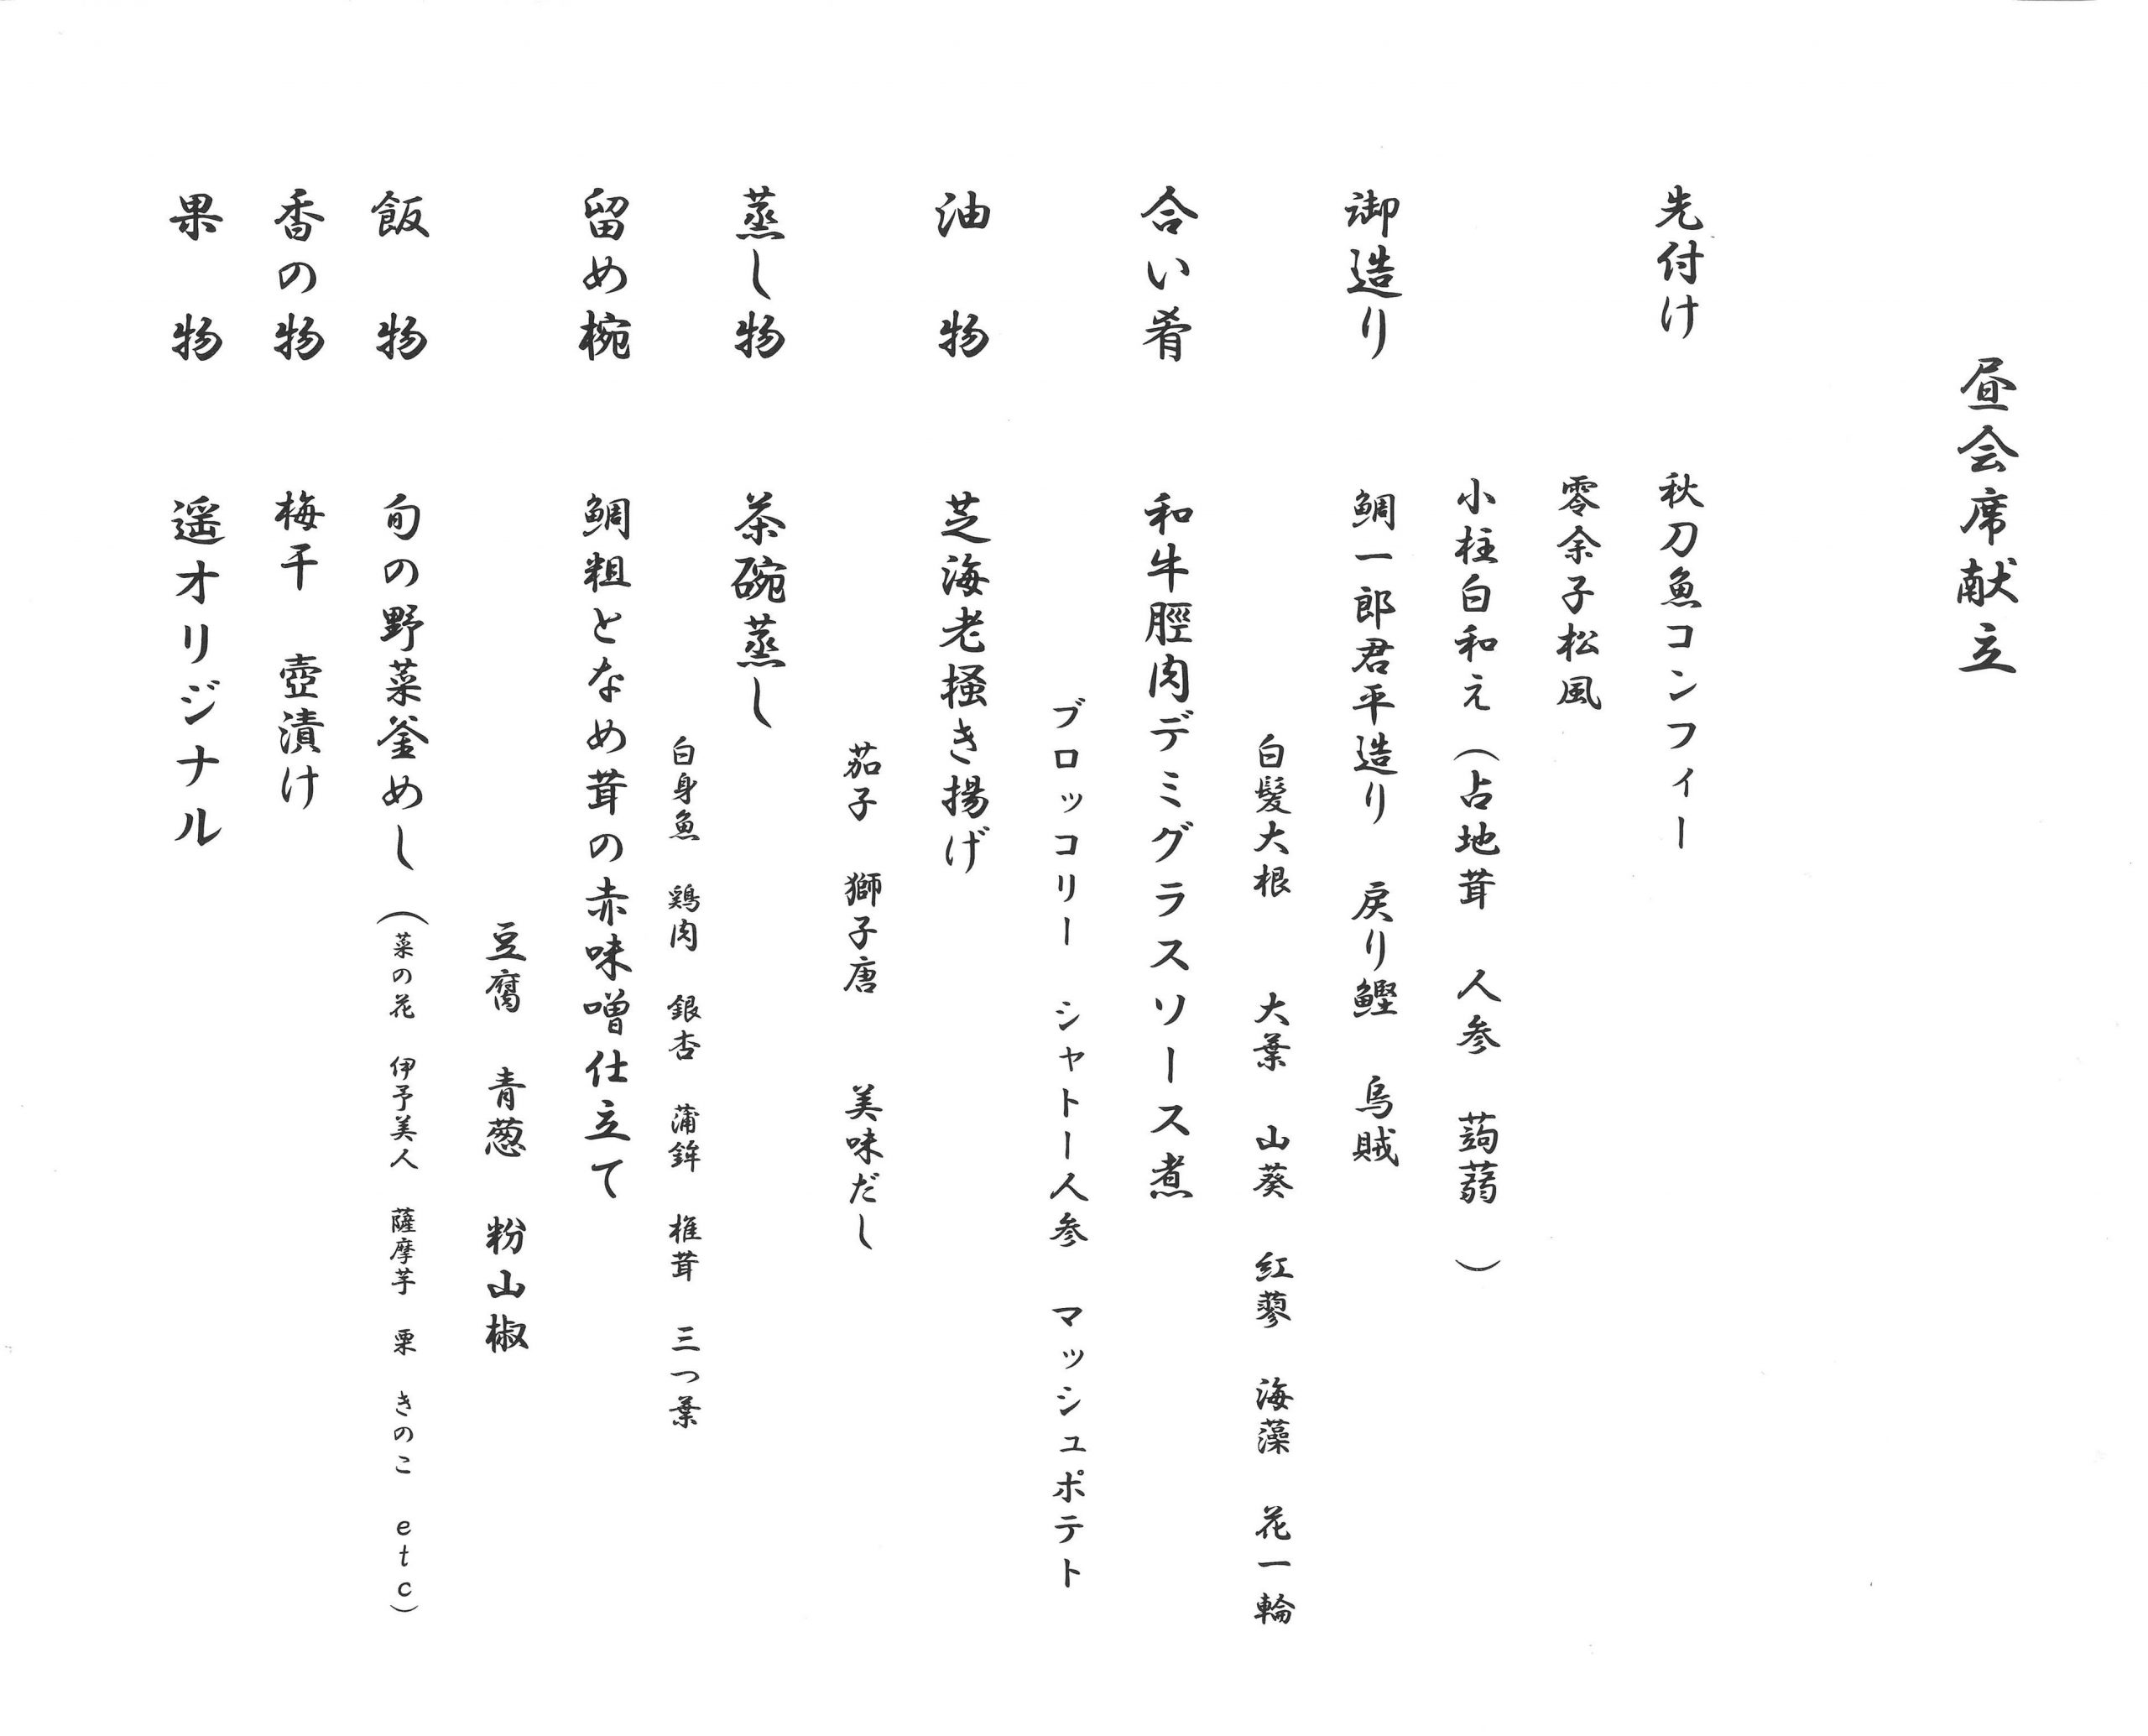 昼会席献立
先付け　秋刀魚コンフィー
零余子松風
小柱白和え（占地茸　人参　蒟蒻　）
御造り　鯛一郎君平造り　戻り鰹　烏賊
白髪大根　　大葉　山葵　紅蓼　海藻　花一輪
合い肴　和牛脛肉デミグラスソース煮
ブロッコリー　シャトー人参　マッシュポテト
油　物　芝海老掻き揚げ
茄子　獅子唐　　美味だし
蒸し物　茶碗蒸し
白身魚　鶏肉　銀杏　蒲鉾　椎茸　三つ葉
留め椀　鯛粗となめ茸の赤味噌仕立て
豆腐　青葱　粉山椒
飯　物　旬の野菜釜めし（菜の花　伊予美人　薩摩芋　栗　きのこ　ｅｔｃ）
香の物　梅干　壺漬け
果　物　遥オリジナル